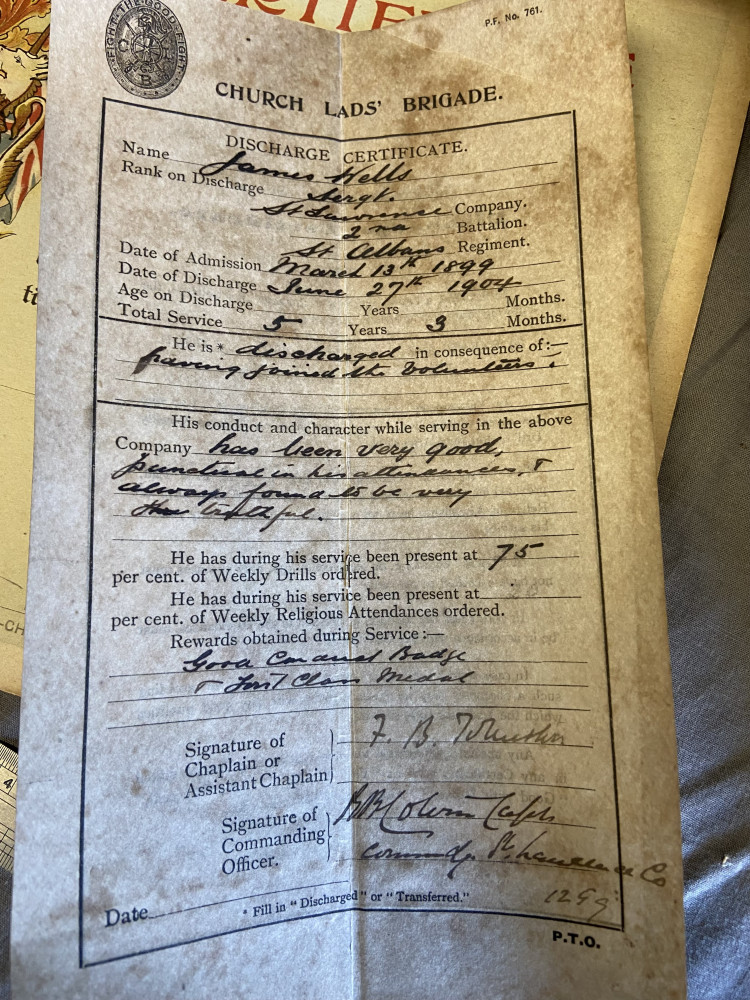 FIGHT·THE·GOOD·FIGHT
C L B
P.F. No. 761.
CHURCH LADS' BRIGADE.
DISCHARGE CERTIFICATE.
Name James Wells
Rank on Discharge Sergt.
St Lawrence Company.
2nd Battalion.
St Albans Regiment.
Date of Admission March 13th 1899
Date of Discharge June 27th 1904
Age on Discharge Years Months.
Total Service 5 Years 3 Months.
He is * discharged in consequence of:—
having joined the Volunteers.
His conduct and character while serving in the above
Company has been very good,
punctual in his attendances, &
always found to be very
truthful.
He has during his service been present at 75
per cent. of Weekly Drills ordered.
He has during his service been present at
per cent. of Weekly Religious Attendances ordered.
Rewards obtained during Service:—
Good Conduct Badge
& First Class Medal
Signature of
Chaplain or
Assistant Chaplain
F. B.
Signature of
Commanding
Officer.
Colvin Capt
Commdg St Lawrence Co
1299
Date
* Fill in "Discharged" or "Transferred."
P.T.O.